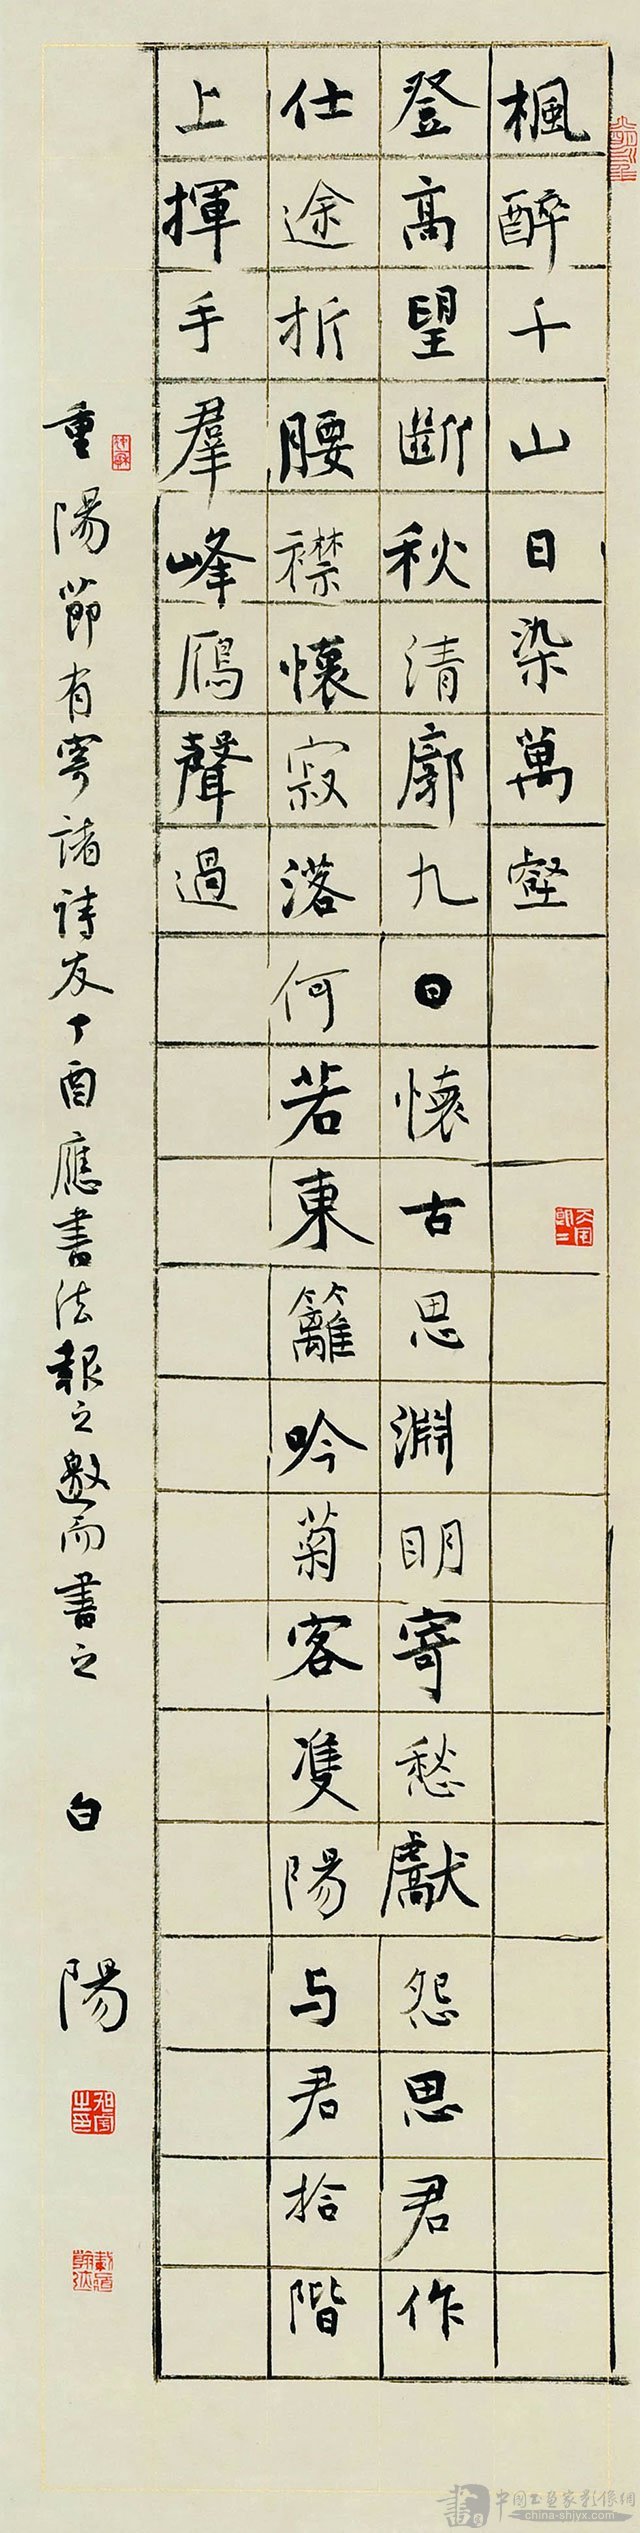 楓醉千山日染萬壑
登高望斷秋清廓九日懷古思淵明寄愁獻怨思君作
仕途折腰襟懷寂落何若東籬吟菊客雙陽与君拾階
上揮手羣峰鴈聲過
重陽節有寄諸詩友丁酉應書法報之邀而書之 白陽
中國書畫家影像網
china-shjyx.com